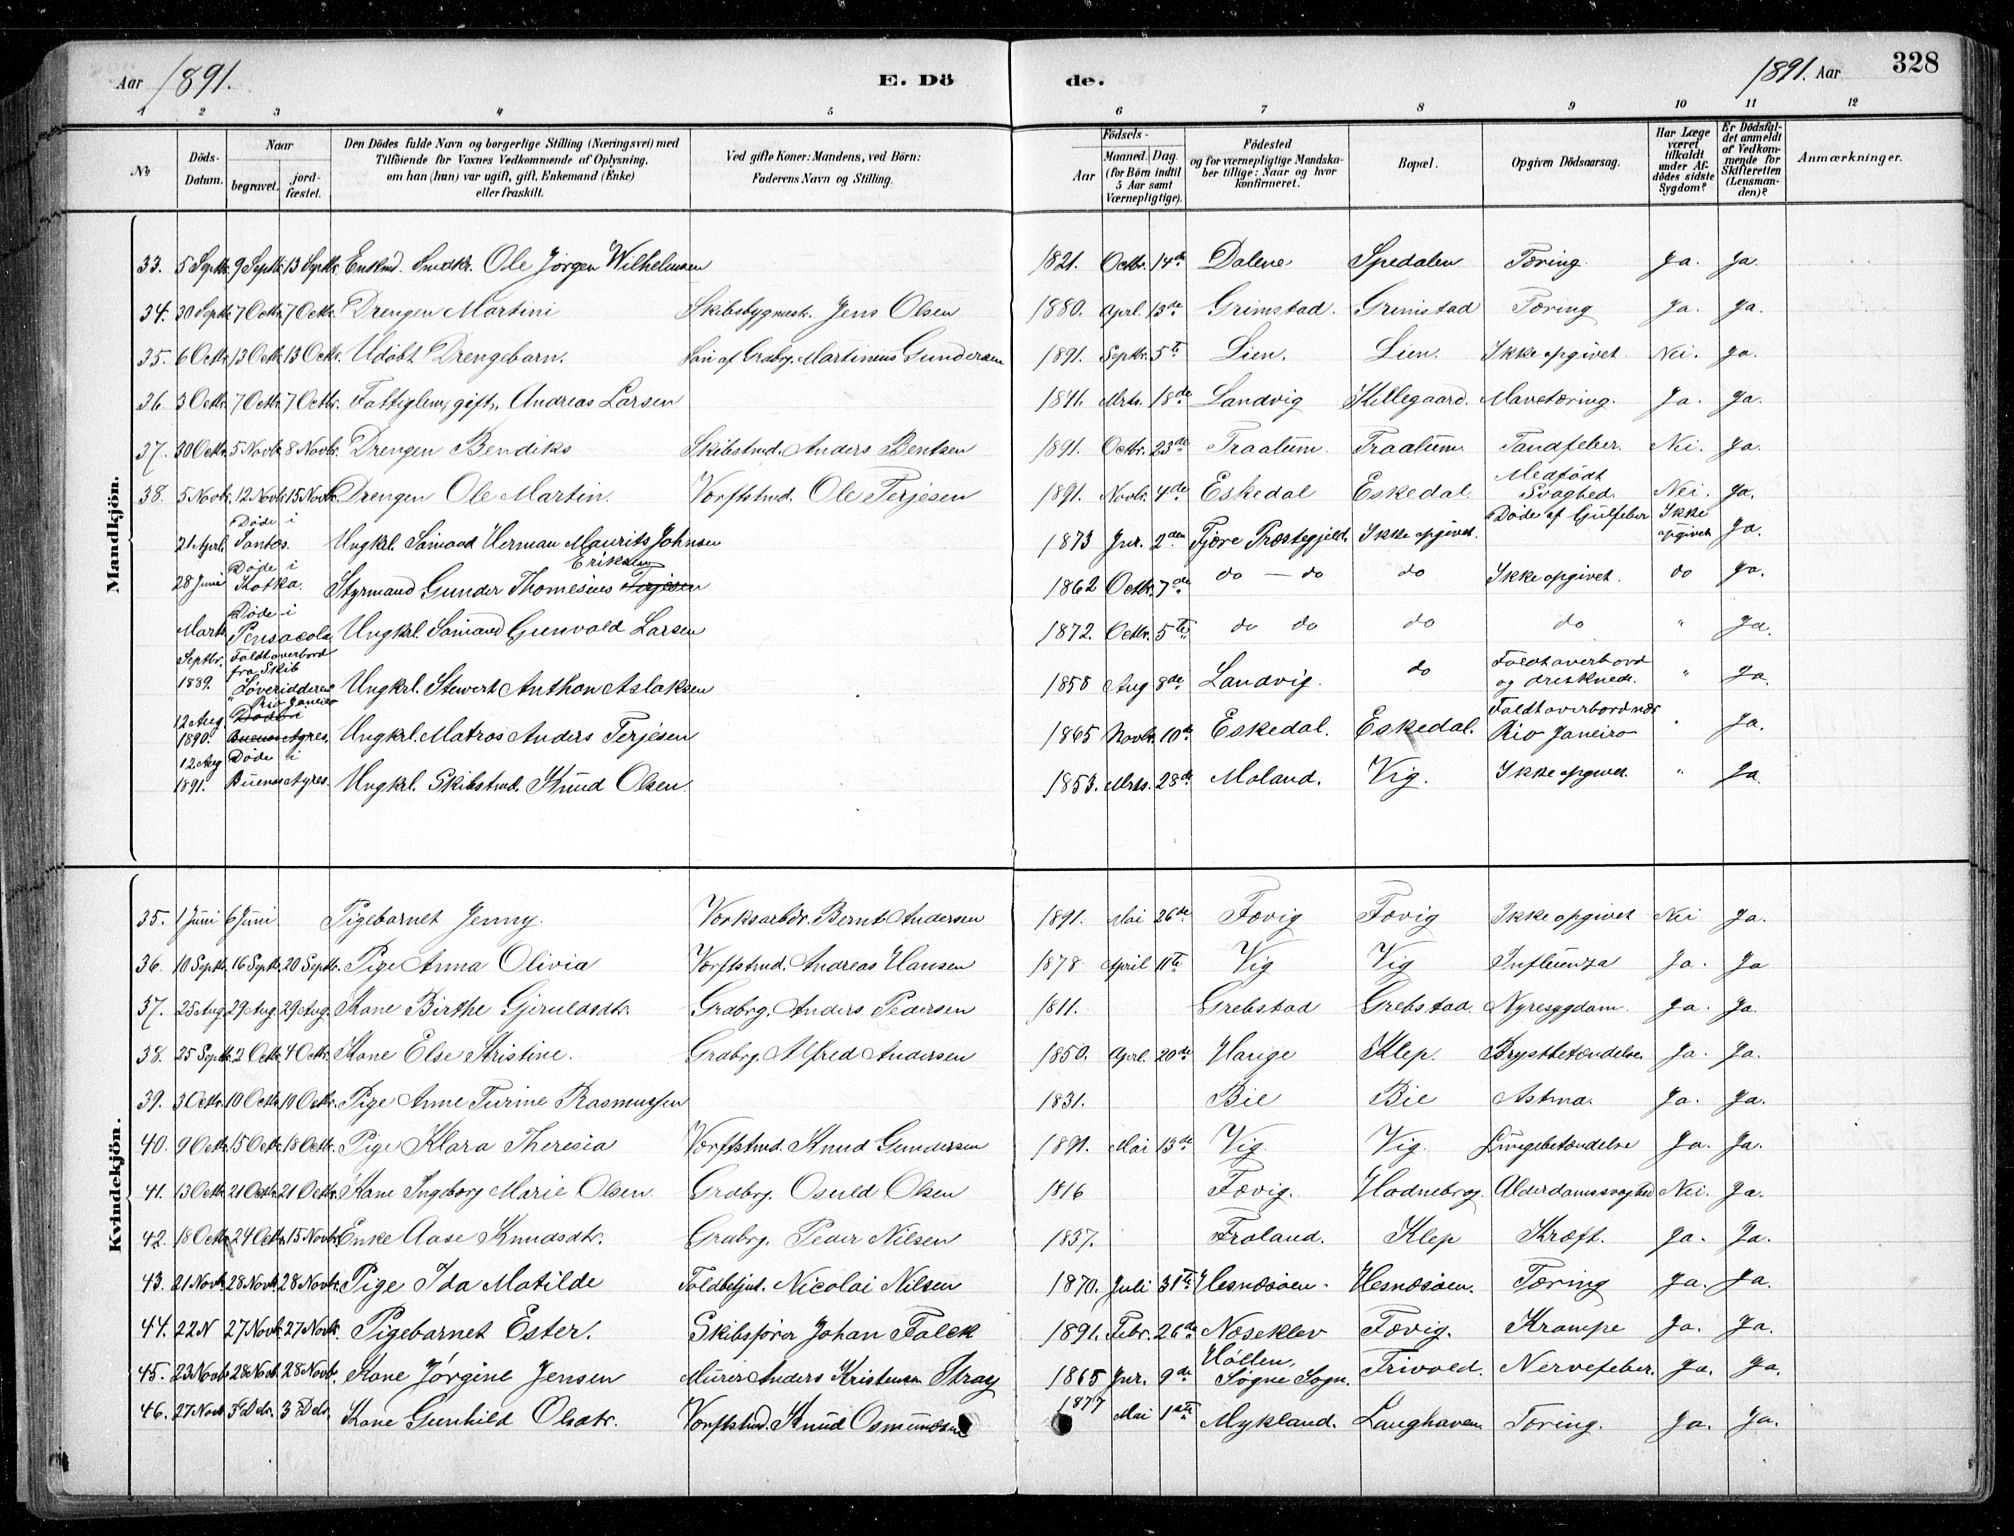 Aar 1891. E. Dö de. 1891. Aar 328
1 2 3 4 5 6 7 8 9 10 11 12
No
Döds-Datum.
Naar
begravet.
jord-fæstet.
Den Dödes fulde Navn og borgerlige Stilling (Næringsvei) med
Tilföiende for Voxnes Vedkommende af Oplysning,
om han (hun) var ugift, gift, Enkemand (Enke)
eller fraskilt.
Ved gifte Koner: Mandens, ved Börn:
Faderens Navn og Stilling.
Födsels-
Aar
Maaned. Dag.
(for Börn indtil
5 Aar samt
Værnepligtige).
Födested
og for værnepligtige Mandska-
ber tillige: Naar og hvor
konfirmeret.
Bopæl.
Opgiven Dödsaarsag.
Har Læge
været
tilkaldt
under Af-
dödes sidste
Sygdom?
Er Dödsfal-
det anmeldt
af Vedkom-
mende for
Skifteretten
(Lensman-
den)?
Anmærkninger.
Mandkjön.
33. 5 Septbr. 9 Septbr. 13 Septbr. Enkmd. Smdkr. Ole Jørgen Wilhelmsen 1821. Octbr. 14de Dalene Spedalen Tæring. Ja. Ja.
34. 30 Septbr. 7 Octbr. 7 Octbr. Drengen Martini Skibsbygmest. Jens Olsen 1880. Aprl. 13de Grimstad. Grimstad Tæring Ja. Ja.
35. 6 Octbr. 13 Octbr. 13 Octbr. Udøbt Drengebarn. Søn af Grdbrg. Martinius Gundersen 1891. Septbr. 5te Lien. Lien. Ikke opgivet. Nei. Ja.
36. 3 Octbr. 7 Octbr. 7 Octbr. Fattiglem, gift, Andreas Larsen 1841. Mrts. 18de Landvig Killegaard. Mavetæring. Ja. Ja.
37. 30 Octbr. 5 Novbr. 8 Novbr. Drengen Bendiks Skibstmd. Anders Bentsen 1891. Octbr. 23de Traalum. Traalum. Tandfeber. Nei. Ja.
38. 5 Novbr. 12 Novbr. 15 Novbr. Drengen Ole Martin. Vorftstmd. Ole Terjesen 1891. Novbr. 4de Eskedal Eskedal. Medfødt Svaghed. Nei. Ja.
21 Aprl. Døde i Santos. Ungkrl. Sømand Herman Maurits Johnsen 1873 Jnr. 2den Fjære Præstegjeld. Ikke opgivet. Døde af Gulfeber Ikke opgivet Ja.
28 Juni Døde i Kotka. Styrmand Gunder Thomesius Terjesen Eriksen 1862 Octbr. 7de do — do do Ikke opgivet. do Ja.
Marts Døde i Pensacola Ungkrl. Sømand Gunvald Larsen 1872. Octbr. 5te do do do do " Ja.
Septbr. 1889. Faldt overbord fra Skib "Løveridderen" Ungkrl. Stewert Anthon Aslaksen 1858 Aug 8de Landvig. do Faldt overbord og drsknede. " Ja.
12 Aug 1890. Rio Janeiro Døde i Buenos Ayres. Ungkrl. Matros Anders Terjesen 1865 Novbr. 10de Eskedal. Eskedal. Faldt overbord nær Rio Janeiro " Ja.
12 Aug 1891. Døde i Buenos Ayres. Ungkrl. Skibstmd. Knud Olsen. 1853. Mrts. 28de Moland. Vig. Ikke opgivet. " Ja.
Kvindekjön.
35. 1 Juni 6 Juni Pigebarnet Jenny. Verksarbdr. Bernt Andersen 1891. Mai 26de Fævig Fævig Ikke opgivet Nei Ja.
36. 10 Septbr. 16 Septbr. 20 Septbr. Pige Anna Olivia Vorftstmd. Andreas Hansen 1878 April 11te Vig Vig Influenza Ja. Ja
37. 25 Aug. 29 Aug. 29 Aug. Kone Birthe Gjeruldsdtr. Grdbrg. Anders Pedersen 1811. Grebstad Grebstad Nyresygdom. Ja. Ja.
38. 25 Septbr. 2 Octbr. 4 Octbr. Kone Else Kristine. Grdbrg. Alfred Andersen 1850. Aprl. 20de Hauge Klep. Brystbetændelse Ja. Ja.
39. 3 Octbr. 10 Octbr. 10 Octbr. Pige Anne Turine Rasmussen 1831. Bie Bie Astma. Ja. Ja.
40. 9 Octbr. 15 Octbr. 18 Octbr. Pige Klara Theresia Vorftstmd. Knud Gundersen 1891. Mai 13de Vig. Vig. Lungebetændelse Ja. Ja.
41. 13 Octbr. 21 Octbr. 21 Octbr. Kone Ingeborg Marie Olsen. Grdbrg. Osuld Olsen 1816 Fævig. Hodnebrog. Alderdomssvaghed Nei. Ja.
42. 18 Octbr. 24 Octbr. 15 Novbr. Enke Aase Knudsdtr. Grdbrg. Peder Nilsen 1837. Froland. Klep Kræft. Ja. Ja.
43. 21 Novbr. 28 Novbr. 28 Novbr. Pige Ida Matilde Toldbetjnt. Nicolai Nilsen 1870. Juli 31te Hesnæsøen. Hesnæsøen. Tæring Ja. Ja.
44. 22 N 27 Novbr. 27 Novbr. Pigebarnet Ester. Skibsfører Johan Falck 1891. Febr. 26de Naseklev Fævig. Krampe Ja. Ja.
45. 23 Novbr. 28 Novbr. 28 Novbr. Kone Jørgine Jensen Murer Anders Kristensen Stray 1865 Jnr. 9de Høllen, Søgne Sogn. Trivold. Nervefeber. Ja. Ja.
46. 27 Novbr. 3 Dcbr. 3 Dcbr. Kone Gunhild Olsdtr. Vorftstmd. Knud Osmundsen 1877 Mai 1ste Mykland. Langhaven Tæring. Ja. Ja.